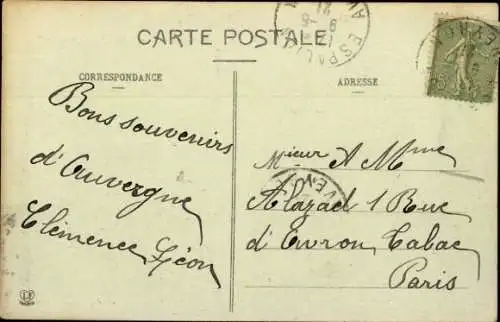 CARTE POSTALE
CORRESPONDANCE
Bons souvenirs
d'Auvergne
Clémence Léon
ADRESSE
Mieur A Mme
1 Rue
d'Avron, Tabac
Paris
15
LF